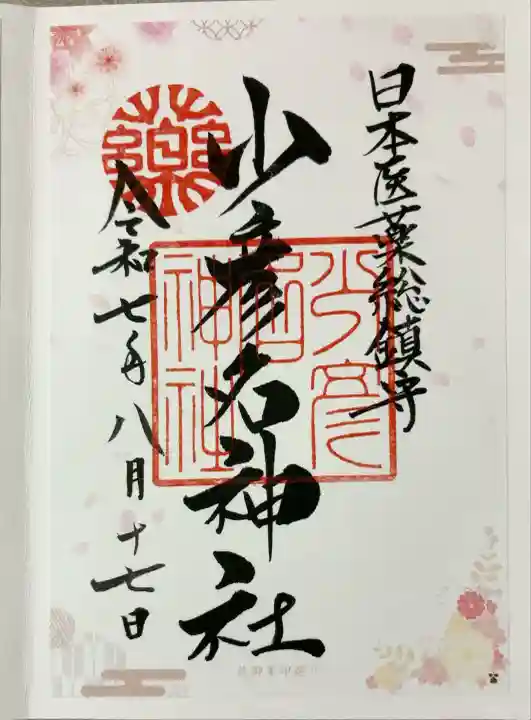 日本医薬総鎮守
少彦名神社
令和七年八月十七日
薬
少彦
名
神社